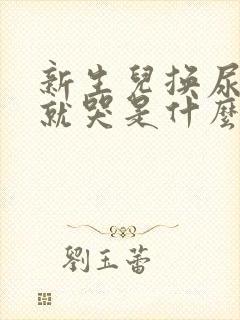 新生兒換尿
就哭是什麼
劉玉蕾